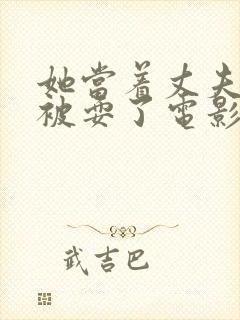 她当着丈夫
被耍了电影
武吉巴